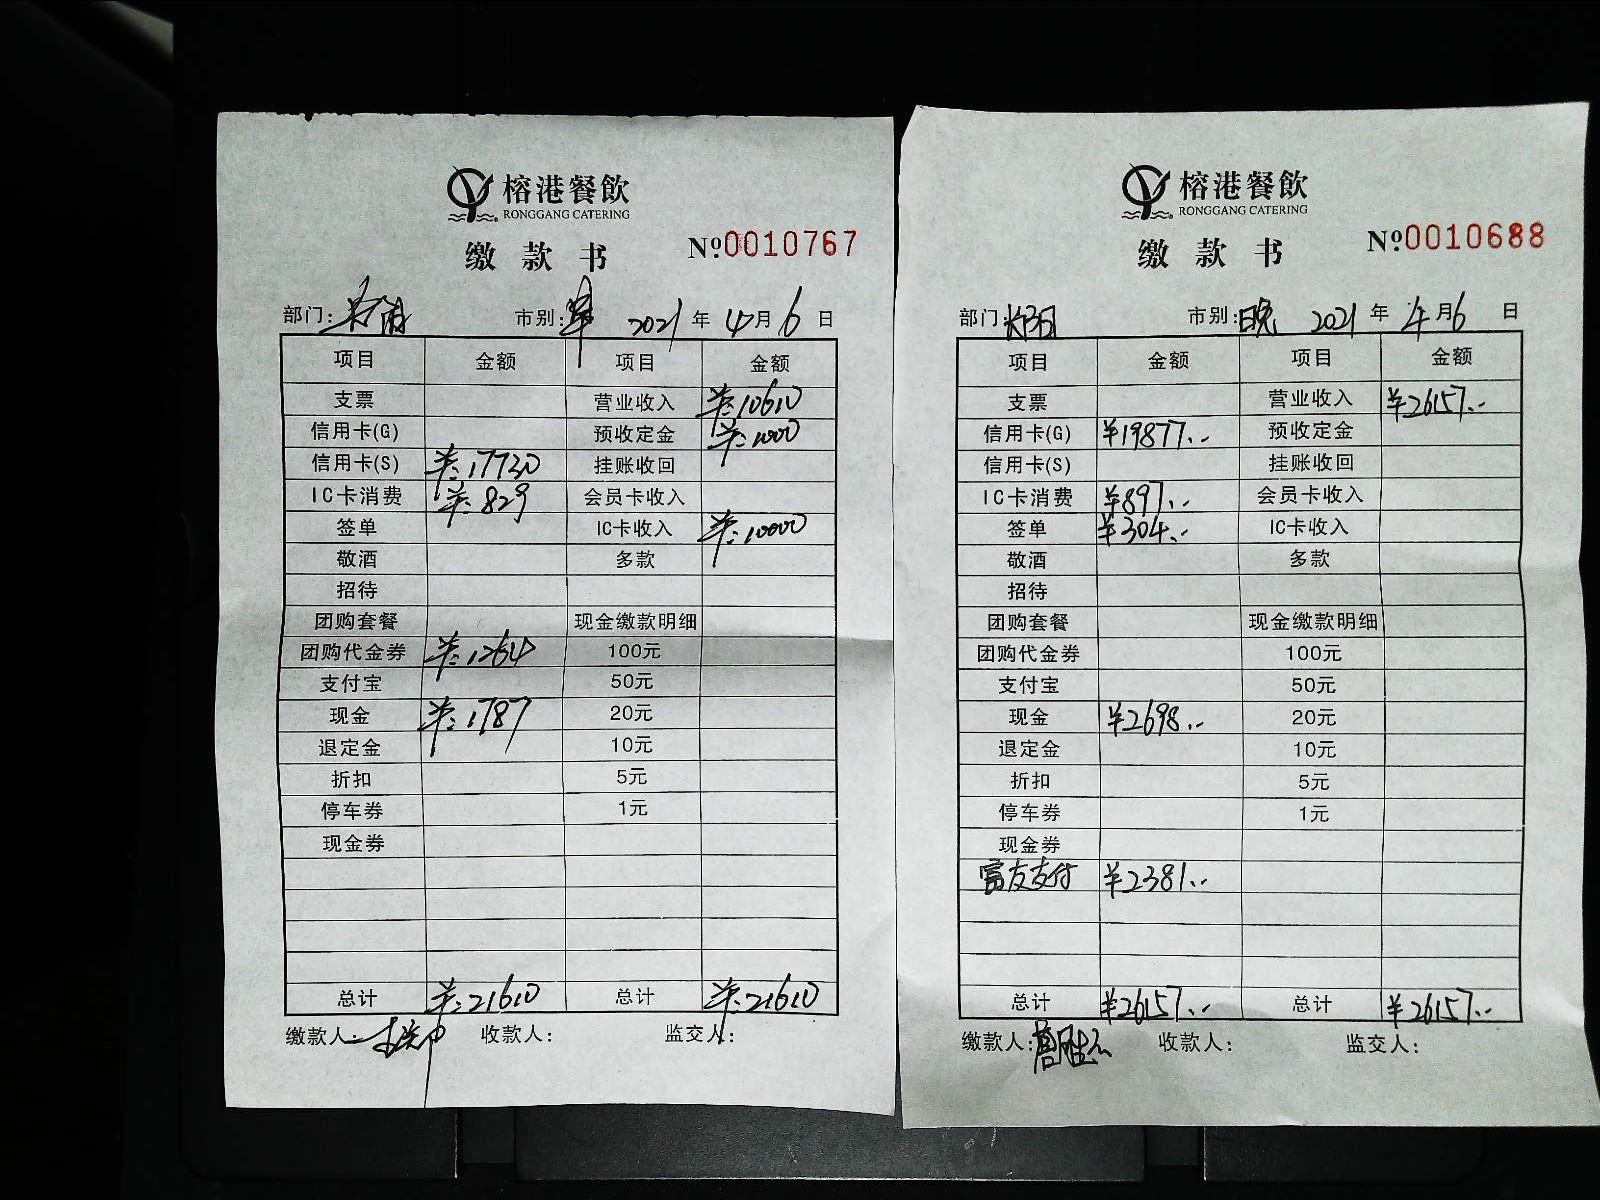 榕港餐飲
RONGGANG CATERING
缴款书 №0010767
部门: 市别: 2021年4月6日
项目 金额 项目 金额
支票 营业收入 ¥:10610
信用卡(G) 预收定金 ¥:1000
信用卡(S) ¥:17730 挂账收回
IC卡消费 ¥:829 会员卡收入
签单 IC卡收入 ¥:10000
敬酒 多款
招待
团购套餐 现金缴款明细
团购代金券 ¥:1264 100元
支付宝 50元
现金 ¥:1787 20元
退定金 10元
折扣 5元
停车券 1元
现金券
总计 ¥:21610 总计 ¥:21610
缴款人: 收款人: 监交人:
榕港餐飲
RONGGANG CATERING
缴款书 №0010688
部门: 市别:晚 2021年4月6日
项目 金额 项目 金额
支票 营业收入 ¥26157.--
信用卡(G) ¥19877.-- 预收定金
信用卡(S) 挂账收回
IC卡消费 ¥897.-- 会员卡收入
签单 ¥304.-- IC卡收入
敬酒 多款
招待
团购套餐 现金缴款明细
团购代金券 100元
支付宝 50元
现金 ¥2698.-- 20元
退定金 10元
折扣 5元
停车券 1元
现金券
富友支付 ¥2381.--
总计 ¥26157.-- 总计 ¥26157.--
缴款人: 收款人: 监交人: